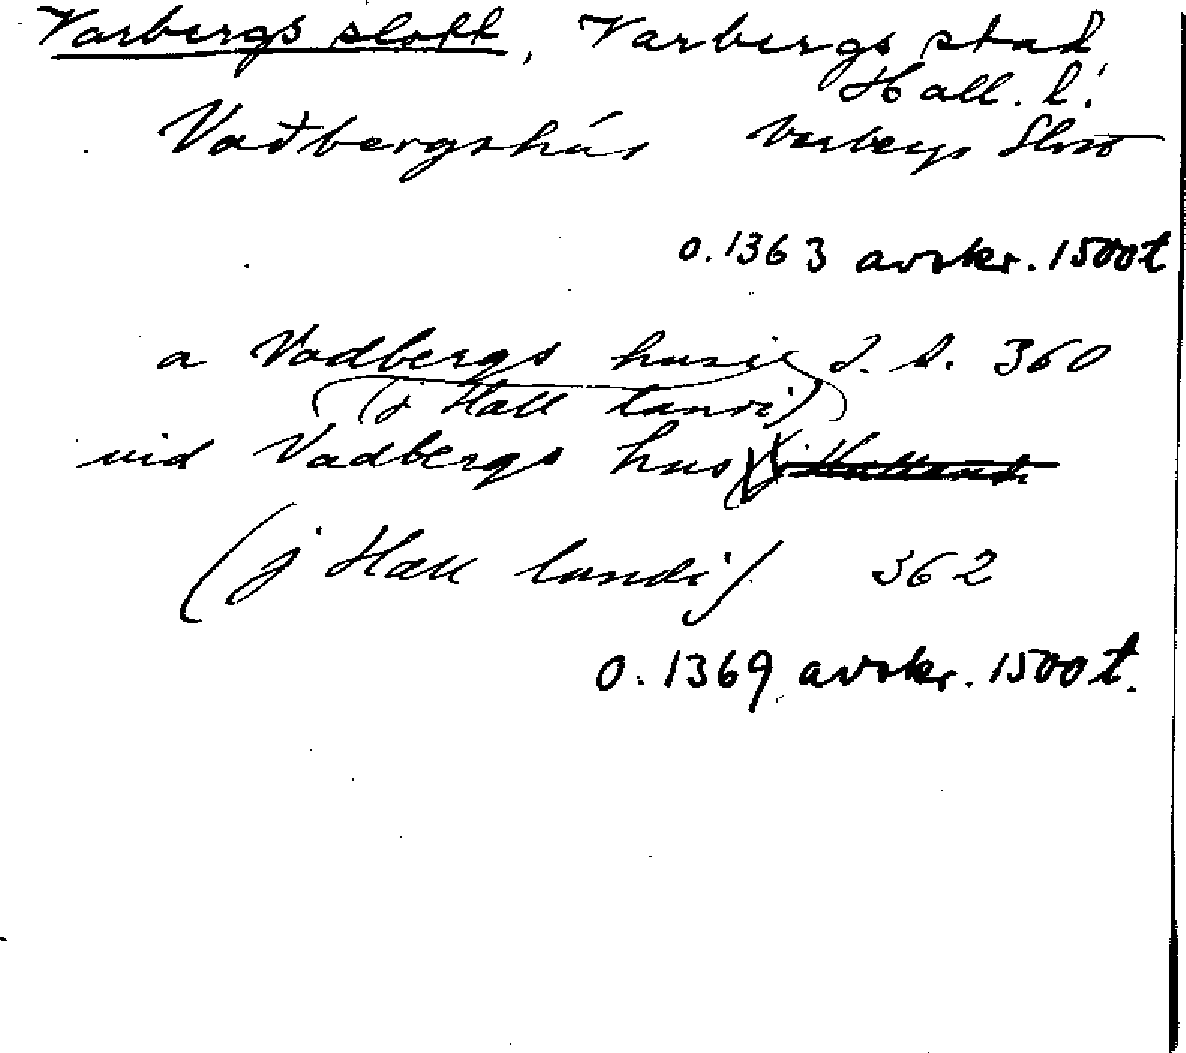 Varbergs slott, Varbergs stad
Hall. l.
Vaðbergshús Varbergs Slott
o. 1363 avskr. 1500t
a Vadbergs husi s. 360
(j Hall landi)
vid Vadbergs hus
(j Hall landi) 362
o. 1369 avskr. 1500t.